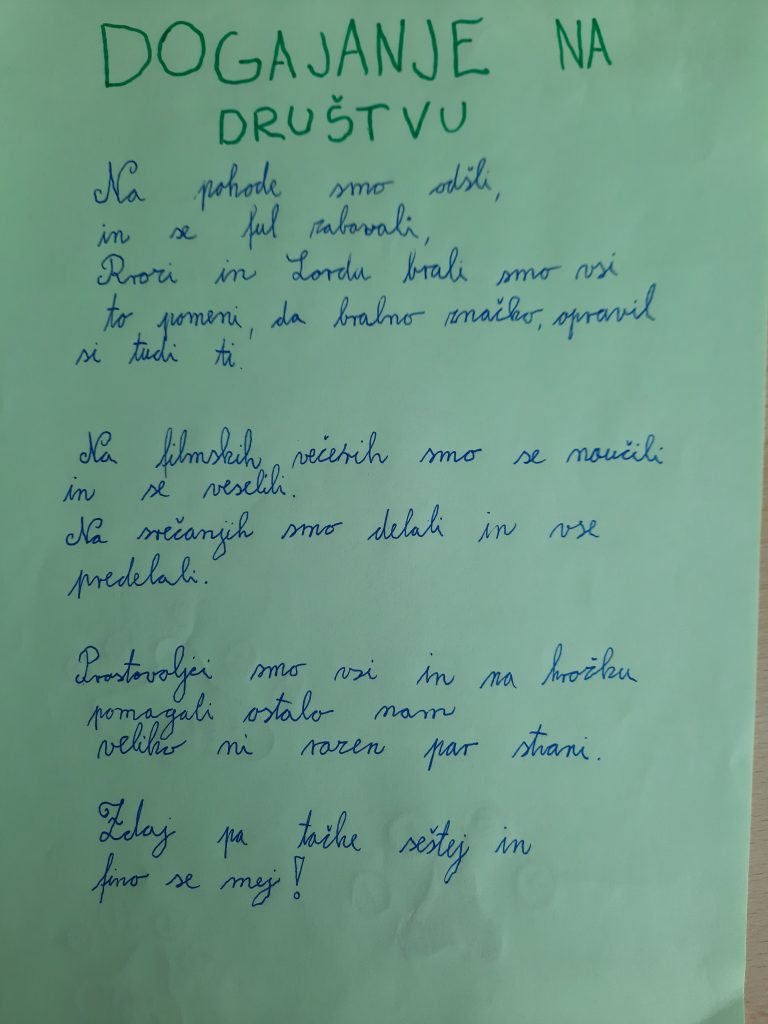 DOGAJANJE NA
DRUŠTVU
Na pohode smo odšli,
in se ful zabavali,
in Lordu brali smo vsi
to pomeni, da bralno značko, opravil
si tudi ti.
Na filmskih večerih smo se naučili
in se veselili.
Na srečanjih smo delali in vse
predelali.
Prostovoljci smo vsi in na krožku
pomagali ostalo nam
veliko ni razen par strani.
Zdaj pa točke seštej in
fino se mej!